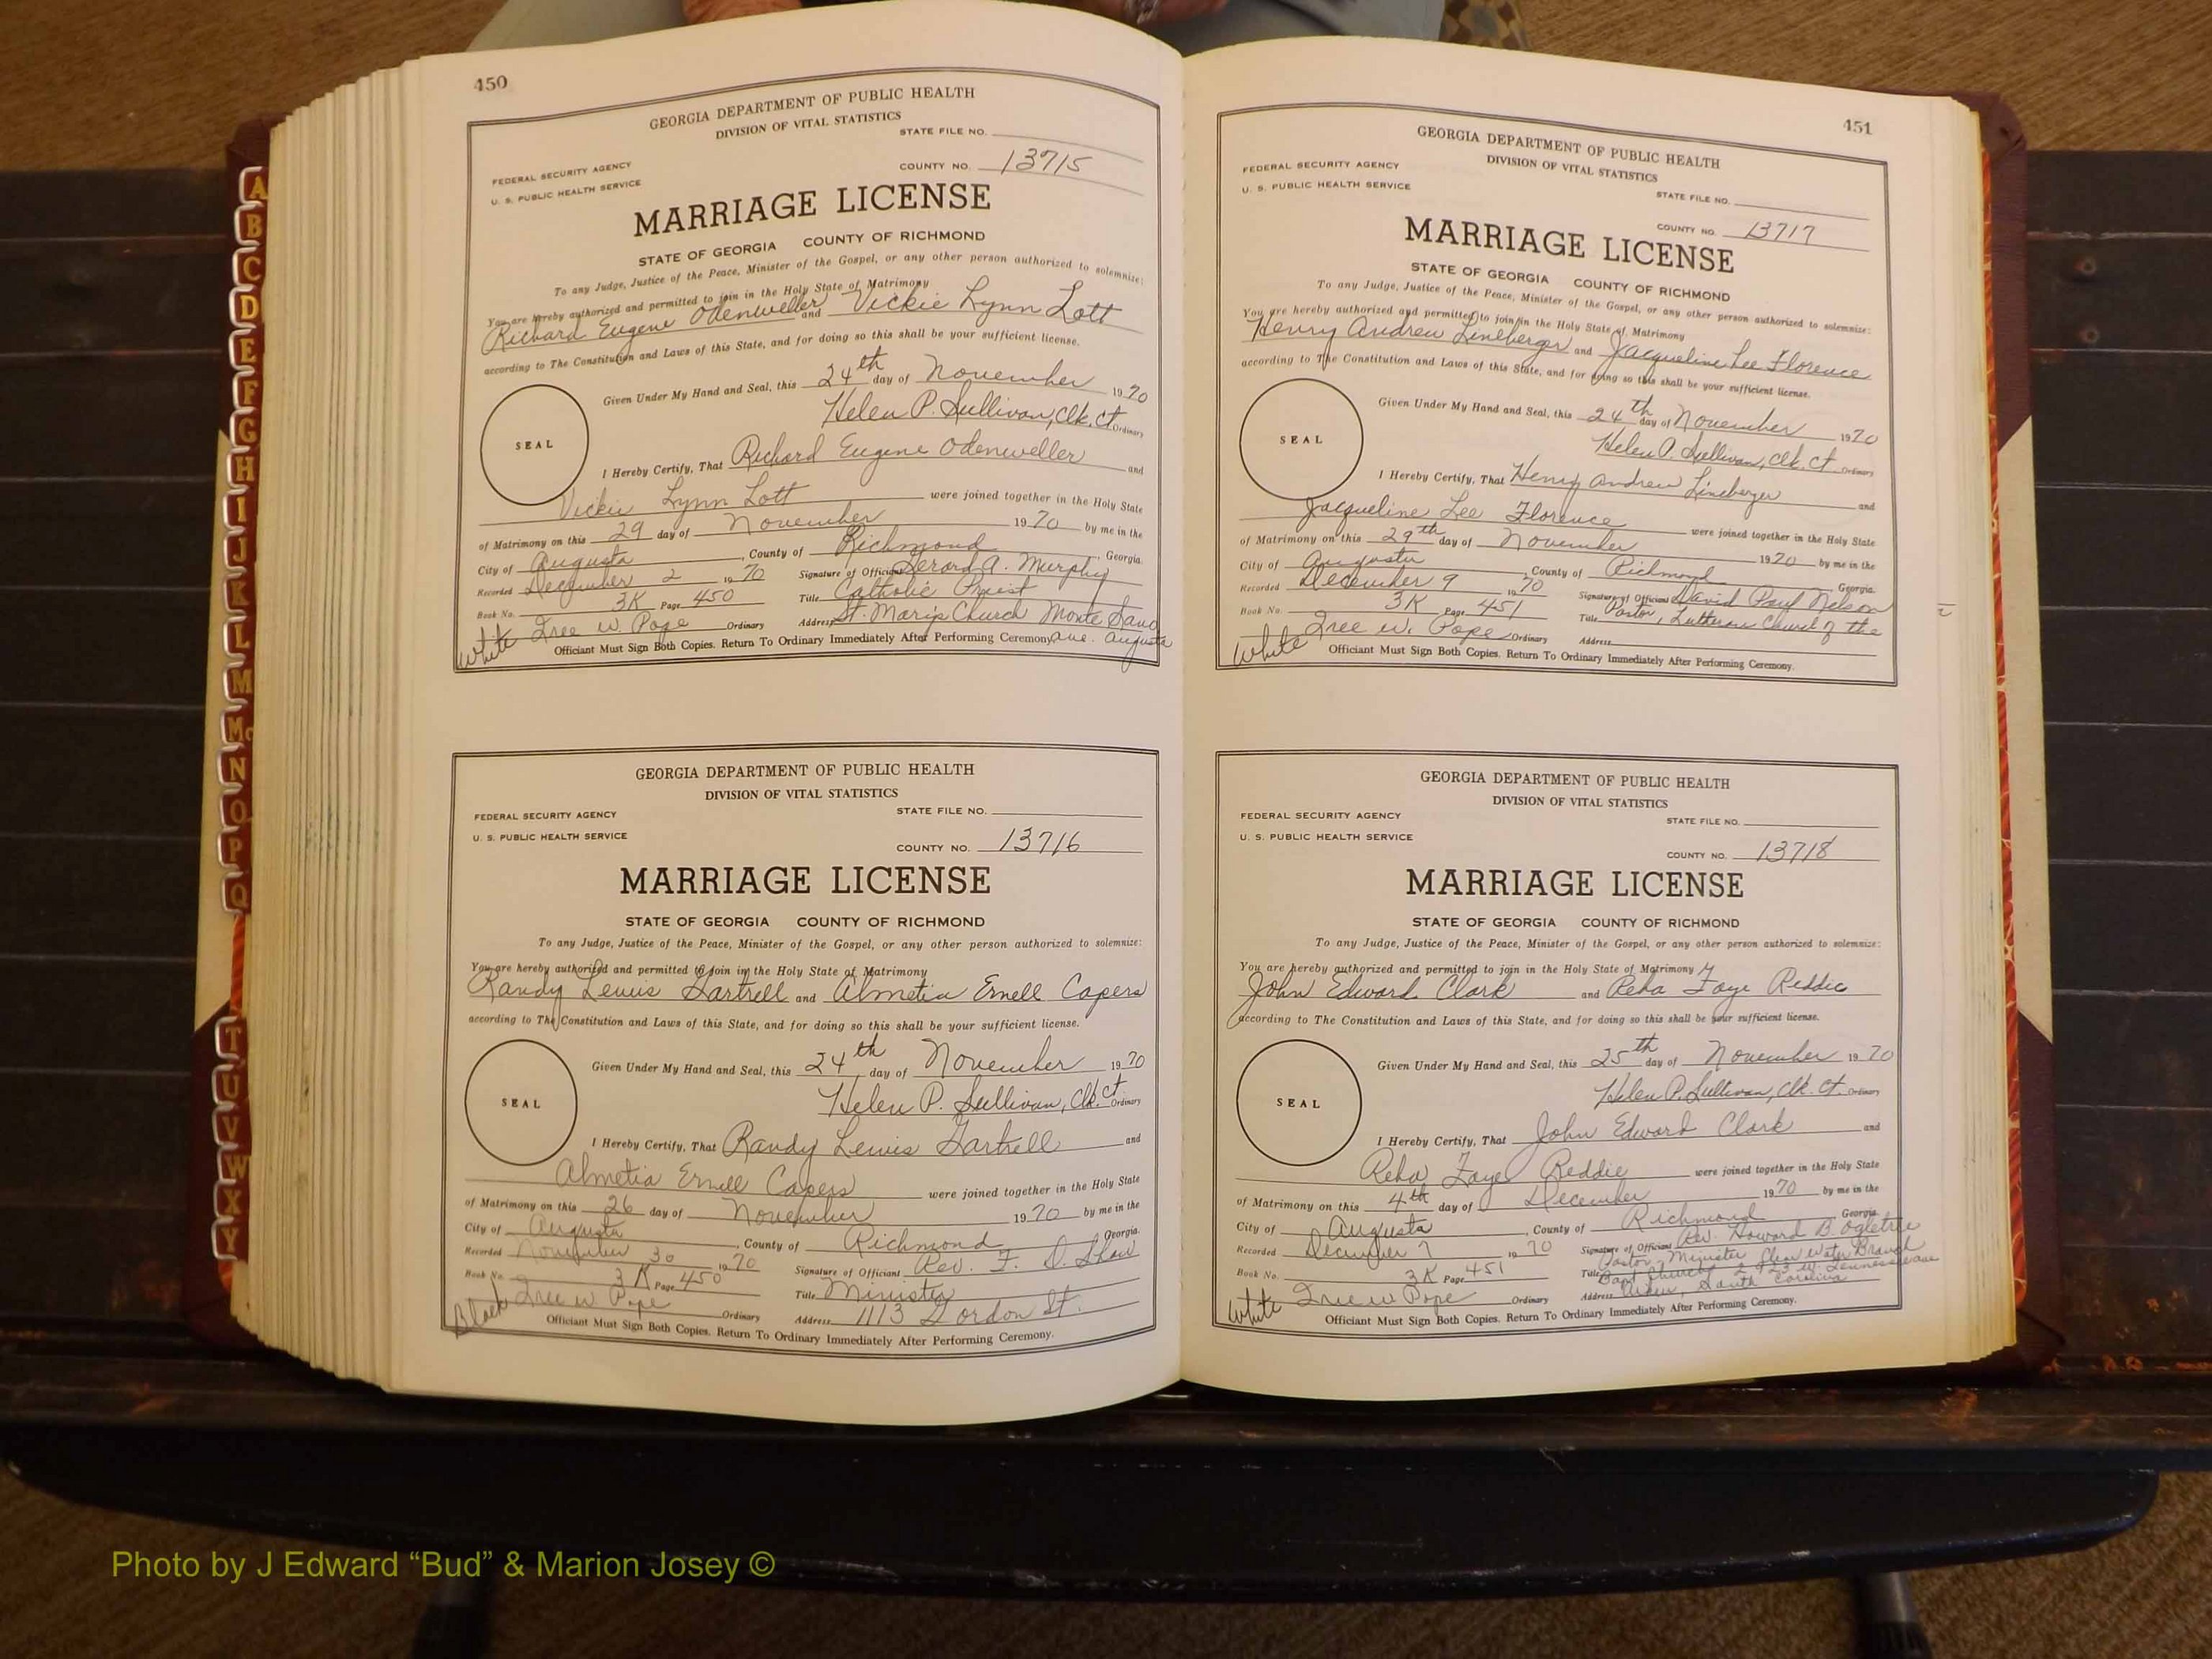 450
GEORGIA DEPARTMENT OF PUBLIC HEALTH
DIVISION OF VITAL STATISTICS
STATE FILE NO.
FEDERAL SECURITY AGENCY
U. S. PUBLIC HEALTH SERVICE
COUNTY NO. 13715
MARRIAGE LICENSE
STATE OF GEORGIA COUNTY OF RICHMOND
To any Judge, Justice of the Peace, Minister of the Gospel, or any other person authorized to solemnize:
You are hereby authorized and permitted to join in the Holy State of Matrimony
Richard Eugene Odenweller and Vickie Lynn Lott
according to The Constitution and Laws of this State, and for doing so this shall be your sufficient license.
Given Under My Hand and Seal, this 24th day of November 1970
Helen P. Sullivan, Clk. Ct. Ordinary
SEAL
I Hereby Certify, That Richard Eugene Odenweller and
Vickie Lynn Lott were joined together in the Holy State
of Matrimony on this 29 day of November 1970 by me in the
City of Augusta, County of Richmond, Georgia.
Recorded December 2 1970 Signature of Officiant Gerard A. Murphy
Book No. 3K Page 450 Title Catholic Priest
Tree W. Pope Ordinary Address St. Mary's Church Monte Sano
White Officiant Must Sign Both Copies. Return To Ordinary Immediately After Performing Ceremony. Ave. Augusta
GEORGIA DEPARTMENT OF PUBLIC HEALTH
DIVISION OF VITAL STATISTICS
FEDERAL SECURITY AGENCY
STATE FILE NO.
U. S. PUBLIC HEALTH SERVICE
COUNTY NO. 13716
MARRIAGE LICENSE
STATE OF GEORGIA COUNTY OF RICHMOND
To any Judge, Justice of the Peace, Minister of the Gospel, or any other person authorized to solemnize:
You are hereby authorized and permitted to join in the Holy State of Matrimony
Randy Lewis Gartrell and Almetia Ernell Capers
according to The Constitution and Laws of this State, and for doing so this shall be your sufficient license.
Given Under My Hand and Seal, this 24th day of November 1970
Helen P. Sullivan, Clk. Ct. Ordinary
SEAL
I Hereby Certify, That Randy Lewis Gartrell and
Almetia Ernell Capers were joined together in the Holy State
of Matrimony on this 26 day of November 1970 by me in the
City of Augusta, County of Richmond, Georgia.
Recorded November 30 1970 Signature of Officiant Rev. F. D. Shaw
Book No. 3K Page 450 Title Minister
Tree W Pope Ordinary Address 1113 Gordon St.
Black Officiant Must Sign Both Copies. Return To Ordinary Immediately After Performing Ceremony.
451
GEORGIA DEPARTMENT OF PUBLIC HEALTH
DIVISION OF VITAL STATISTICS
FEDERAL SECURITY AGENCY
U. S. PUBLIC HEALTH SERVICE
STATE FILE NO.
COUNTY NO. 13717
MARRIAGE LICENSE
STATE OF GEORGIA COUNTY OF RICHMOND
To any Judge, Justice of the Peace, Minister of the Gospel, or any other person authorized to solemnize:
You are hereby authorized and permitted to join in the Holy State of Matrimony
Henry Andrew Lineberger and Jacqueline Lee Florence
according to The Constitution and Laws of this State, and for doing so this shall be your sufficient license.
Given Under My Hand and Seal, this 24th day of November 1970
Helen P. Sullivan, Clk. Ct. Ordinary
SEAL
I Hereby Certify, That Henry Andrew Lineberger and
Jacqueline Lee Florence were joined together in the Holy State
of Matrimony on this 29th day of November 1970 by me in the
City of Augusta, County of Richmond Georgia.
Recorded December 9 1970 Signature of Officiant David Paul Nelson
Book No. 3K Page 451 Title Pastor, Lutheran Church of the
Tree W. Pope Ordinary Address
White Officiant Must Sign Both Copies. Return To Ordinary Immediately After Performing Ceremony.
GEORGIA DEPARTMENT OF PUBLIC HEALTH
DIVISION OF VITAL STATISTICS
FEDERAL SECURITY AGENCY
STATE FILE NO.
U. S. PUBLIC HEALTH SERVICE
COUNTY NO. 13718
MARRIAGE LICENSE
STATE OF GEORGIA COUNTY OF RICHMOND
To any Judge, Justice of the Peace, Minister of the Gospel, or any other person authorized to solemnize:
You are hereby authorized and permitted to join in the Holy State of Matrimony
John Edward Clark and Reha Faye Reddic
according to The Constitution and Laws of this State, and for doing so this shall be your sufficient license.
Given Under My Hand and Seal, this 25th day of November 1970
Helen P. Sullivan, Clk. Ct. Ordinary
SEAL
I Hereby Certify, That John Edward Clark and
Reha Faye Reddie were joined together in the Holy State
of Matrimony on this 4th day of December 1970 by me in the
City of Augusta, County of Richmond Georgia
Recorded December 7 1970 Signature of Officiant Rev. Howard B. Ogletree
Pastor, Minister Clear Water Branch
Book No. 3K Page 451 Title Bapt Church
Tree W Pope Ordinary Address Aiken, South Carolina
White Officiant Must Sign Both Copies. Return To Ordinary Immediately After Performing Ceremony.
A
B
C
D
E
F
G
H
I
J
K
L
M
Mc
N
O
P
Q
T
U
V
W
X
Y
Photo by J Edward “Bud” & Marion Josey ©